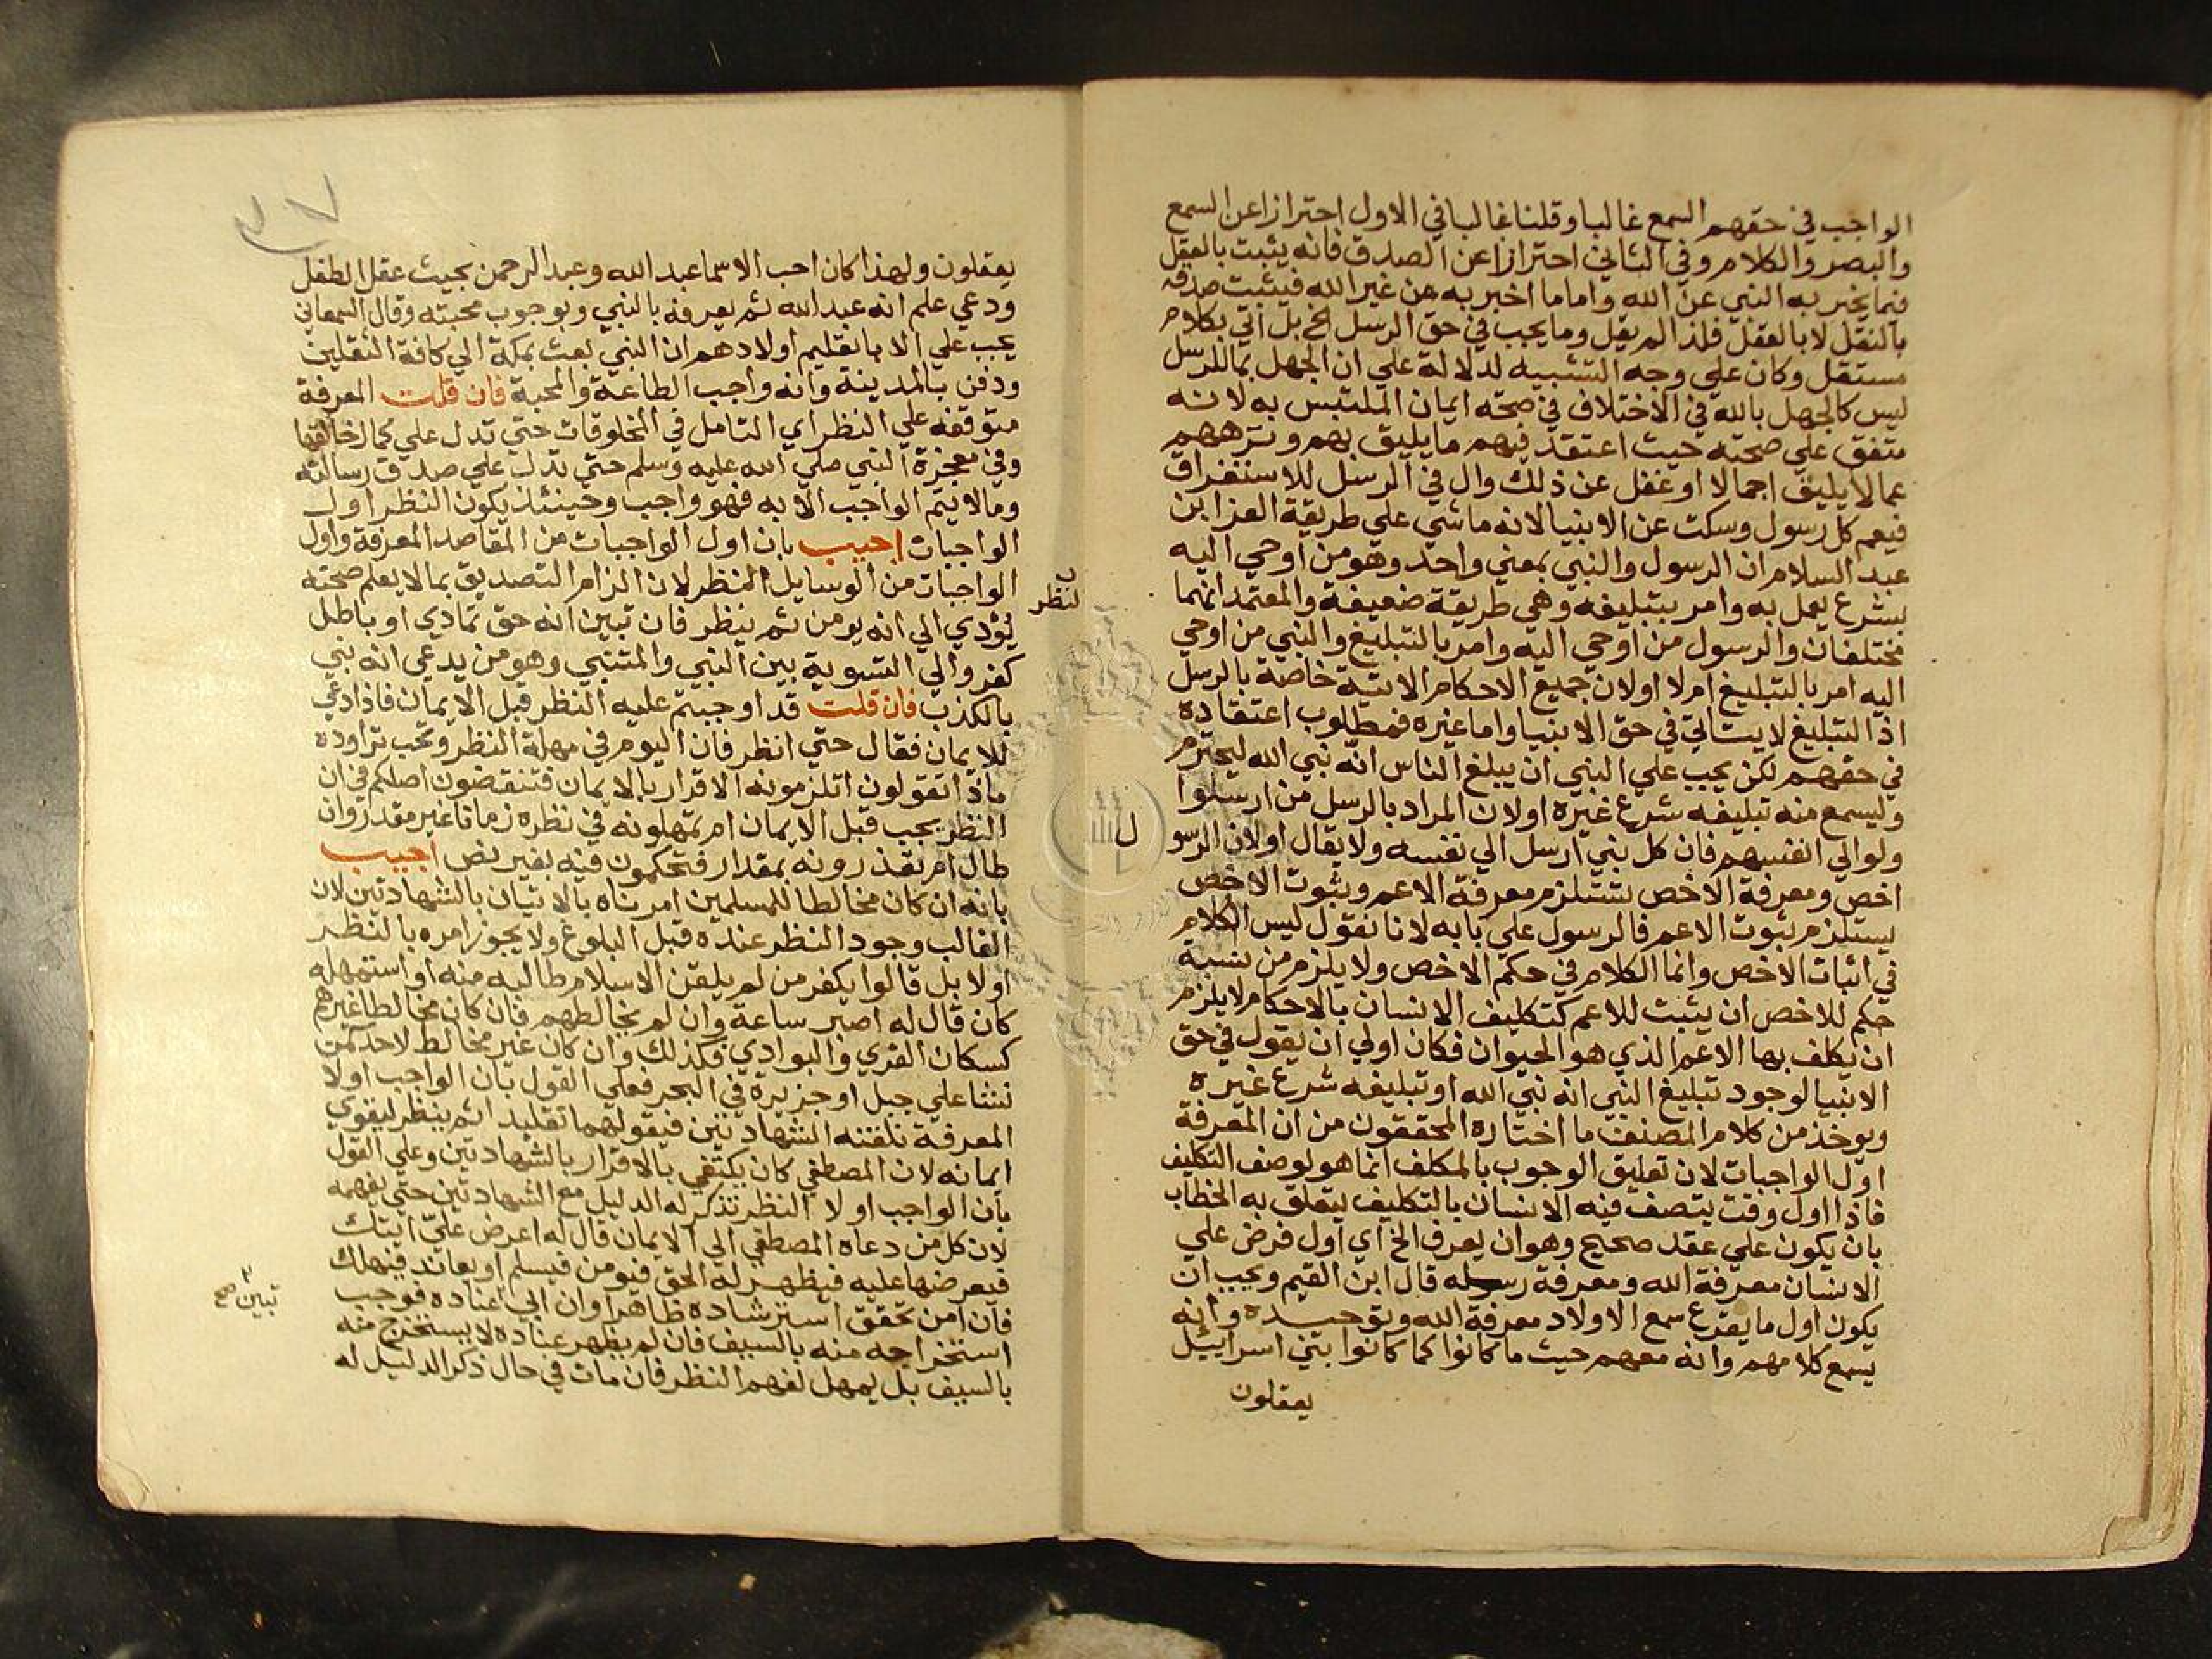 الواجب في حقهم السمع غالبا وقلنا غالبا في الاول احترازا عن السمع
والبصر والكلام وفي الثاني احترازا عن الصدق فانه يثبت بالعقل
فيما يخبر به النبي عن الله واما ما اخبر به عن غير الله فيثبت صدقه
بالنقل لا بالعقل فلذا لم يقل وما يجب في حق الرسل الخ بل اتي بكلام
مستقل وكان علي وجه التشبيه لدلالة علي ان الجهل بما للرسل
ليس كالجهل بالله في الاختلاف في صحة ايمان الملتبس به لانه
متفق علي صحته حيث اعتقد فيهم ما يليق بهم ونزههم
عما لا يليق اجمالا او غفل عن ذلك وال في الرسل للاستغراق
فيعم كل رسول وسكت عن الانبيا لانه ماشي علي طريقة العز ابن
عبد السلام ان الرسول والنبي بمعني واحد وهو من اوحي اليه
بشرع يعمل به وامر بتبليغه وهي طريقة ضعيفة والمعتمد انهما
مختلفان والرسول من اوحي اليه وامر بالتبليغ والنبي من اوحي
اليه امر بالتبليغ ام لا او لان جميع الاحكام الاتية خاصة بالرسل
اذ التبليغ لا يتاتي في حق الانبيا واما غيره فمطلوب اعتقاده
في حقهم لكن يجب علي النبي ان يبلغ الناس انه نبي الله ليحترم
وليسمع منه تبليغه شرع غيره او لان المراد بالرسل من ارسلوا
ولو الي انفسهم فان كل نبي ارسل الي نفسه ولا يقال او لان الرسول
اخص ومعرفة الاخص تستلزم معرفة الاعم وبثبوت الاخص
يستلزم ثبوت الاعم فالرسول علي بابه لانا نقول ليس الكلام
في اثبات الاخص وانما الكلام في حكم الاخص ولا يلزم من نسبة
حكم للاخص ان يثبت للاعم كتكليف الانسان بالاحكام لا يلزم
ان يكلف بها الاعم الذي هو الحيوان فكان اولي ان يقول في حق
الانبيا لوجود تبليغ النبي انه نبي الله او تبليغه شرع غيره
ويوخذ من كلام المصنف ما اختاره المحققون من ان المعرفة
اول الواجبات لان تعليق الوجوب بالمكلف انما هو لوصف التكليف
فاذا اول وقت يتصف فيه الانسان بالتكليف يتعلق به الخطاب
بان يكون علي عقد صحيح وهو ان يعرف الخ اي اول فرض علي
الانسان معرفة الله ومعرفة رسله قال ابن القيم ويجب ان
يكون اول ما يقرع سمع الاولاد معرفة الله وتوحيده وانه
يسمع كلامهم وانه معهم حيث ما كانوا كما كانوا بني اسراييل
يعقلون
يعقلون ولهذا كان احب الاسما عبد الله وعبد الرحمن بحيث عقل الطفل
ودعي علم انه عبد الله ثم يعرفه بالنبي وبوجوب محبته وقال السمعاني
يجب علي الابا تعليم اولادهم ان النبي بعث بمكة الي كافة الثقلين
ودفن بالمدينة وانه واجب الطاعة والمحبة فان قلت المعرفة
متوقفة علي النظر اي التامل في المخلوقات حتي تدل علي كمال خالقها
وفي معجزة النبي صلي الله عليه وسلم حتي تدل علي صدق رسالته
وما لا يتم الواجب الا به فهو واجب وحينئذ يكون النظر اول
الواجبات اجيب بان اول الواجبات من المقاصد المعرفة واول
الواجبات من الوسايل النظر لان الزام التصديق بما لا يعلم صحته
لنظر
يؤدي الي انه يومن ثم ينظر فان تبين انه حق تمادي او باطل
كفر والي التسوية بين النبي والمتنبي وهو من يدعي انه نبي
بالكذب فان قلت قد اوجبتم عليه النظر قبل الايمان فاذا دعي
للايمان فقال حتي انظر فان اليوم في مهلة النظر وتحت ترداده
ماذا تقولون اتلزمونه الاقرار بالايمان فتنقضون اصلكم في ان
النظر يجب قبل الايمان ام تمهلونه في نظره زمانا غير مقدر وان
طال ام تقدرونه بمقدار فتحكمون فيه بغير نص اجيب
بانه ان كان مخالطا للمسلمين امرناه بالاتيان بالشهادتين لان
الغالب وجود النظر عنده قبل البلوغ ولا يجوز امره بالنظر
اولا بل قالوا يكفر من لم يلقن الاسلام طالبه منه او استمهله
كان قال له اصبر ساعة وان لم يخالطهم فان كان مخالطا غيرهم
كسكان القري والبوادي فكذلك وان كان غير مخالط لاحد كمن
نشا علي جبل او جزيرة في البحر فعلي القول بان الواجب اولا
المعرفة نلقنه الشهادتين فيقولهما تقليدا ثم ينظر ليقوي
ايمانه لان المصطفي كان يكتفي بالاقرار بالشهادتين وعلي القول
بان الواجب اولا النظر نذكر له الدليل مع الشهادتين حتي يفهمه
لان كل من دعاه المصطفي الي الايمان قال له اعرض علي ايتك
فيعرضها عليه فيظهر له الحق فيومن فيسلم او يعاند فيهلك
فان امن تحقق استرشاده ظاهرا وان ابي عناده فوجب
تبين صح
استخراجه منه بالسيف فان لم يظهر عناده لا يستخرج منه
بالسيف بل يمهل لفهم النظر فان مات في حال ذكر الدليل له